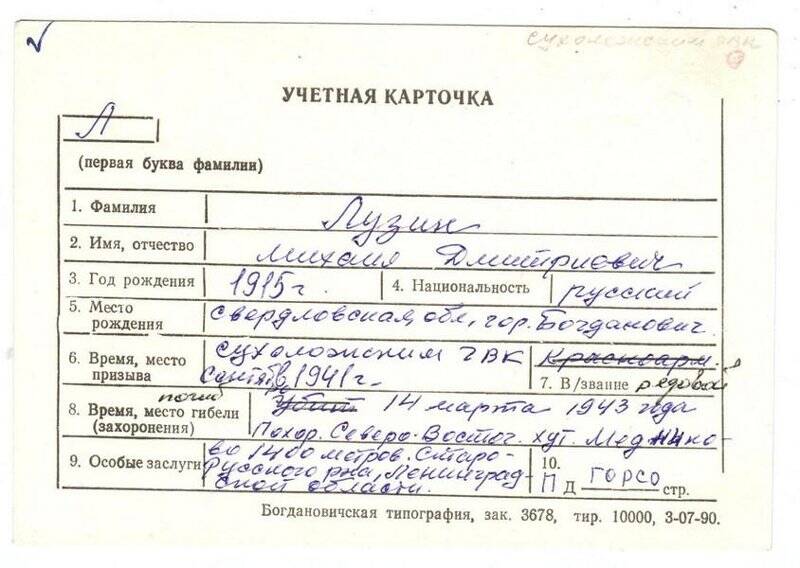 сухоложским ГВК
УЧЕТНАЯ КАРТОЧКА
Л
(первая буква фамилии)
1. Фамилия Лузин
2. Имя, отчество Михаил Дмитриевич
3. Год рождения 1915 г. 4. Национальность русский
5. Место рождения Свердловская обл, гор. Богданович.
6. Время, место призыва сухоложским ГВК Красноарм.
Сентябрь 1941 г. 7. В/звание рядовой
погиб
8. Время, место гибели Убит 14 марта 1943 года
(захоронения) Похор. Северо-Восточ. хут. Медянко-
во 1400 метров. Старо-
9. Особые заслуги Русского рна, Ленинград- 10.
ской области. П Д ГОРСО стр.
Богдановичская типография, зак. 3678, тир. 10000, 3-07-90.